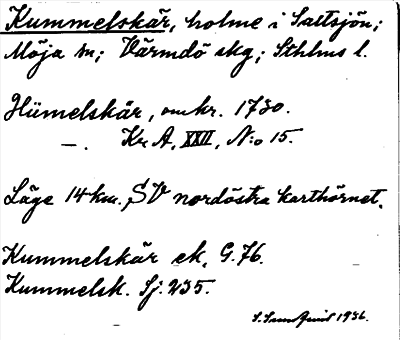 Kummelskär, holme i Saltsjön;
Möja sn; Värmdö skg; Sthlms l.
Hümelskär, omkr. 1730.
—. Kr A, XXII, N:o 15.
Läge 14 km. SV nordöstra karthörnet.
Kummelskär ek. G. 76.
Kummelsk. Sj. 235.
1936.